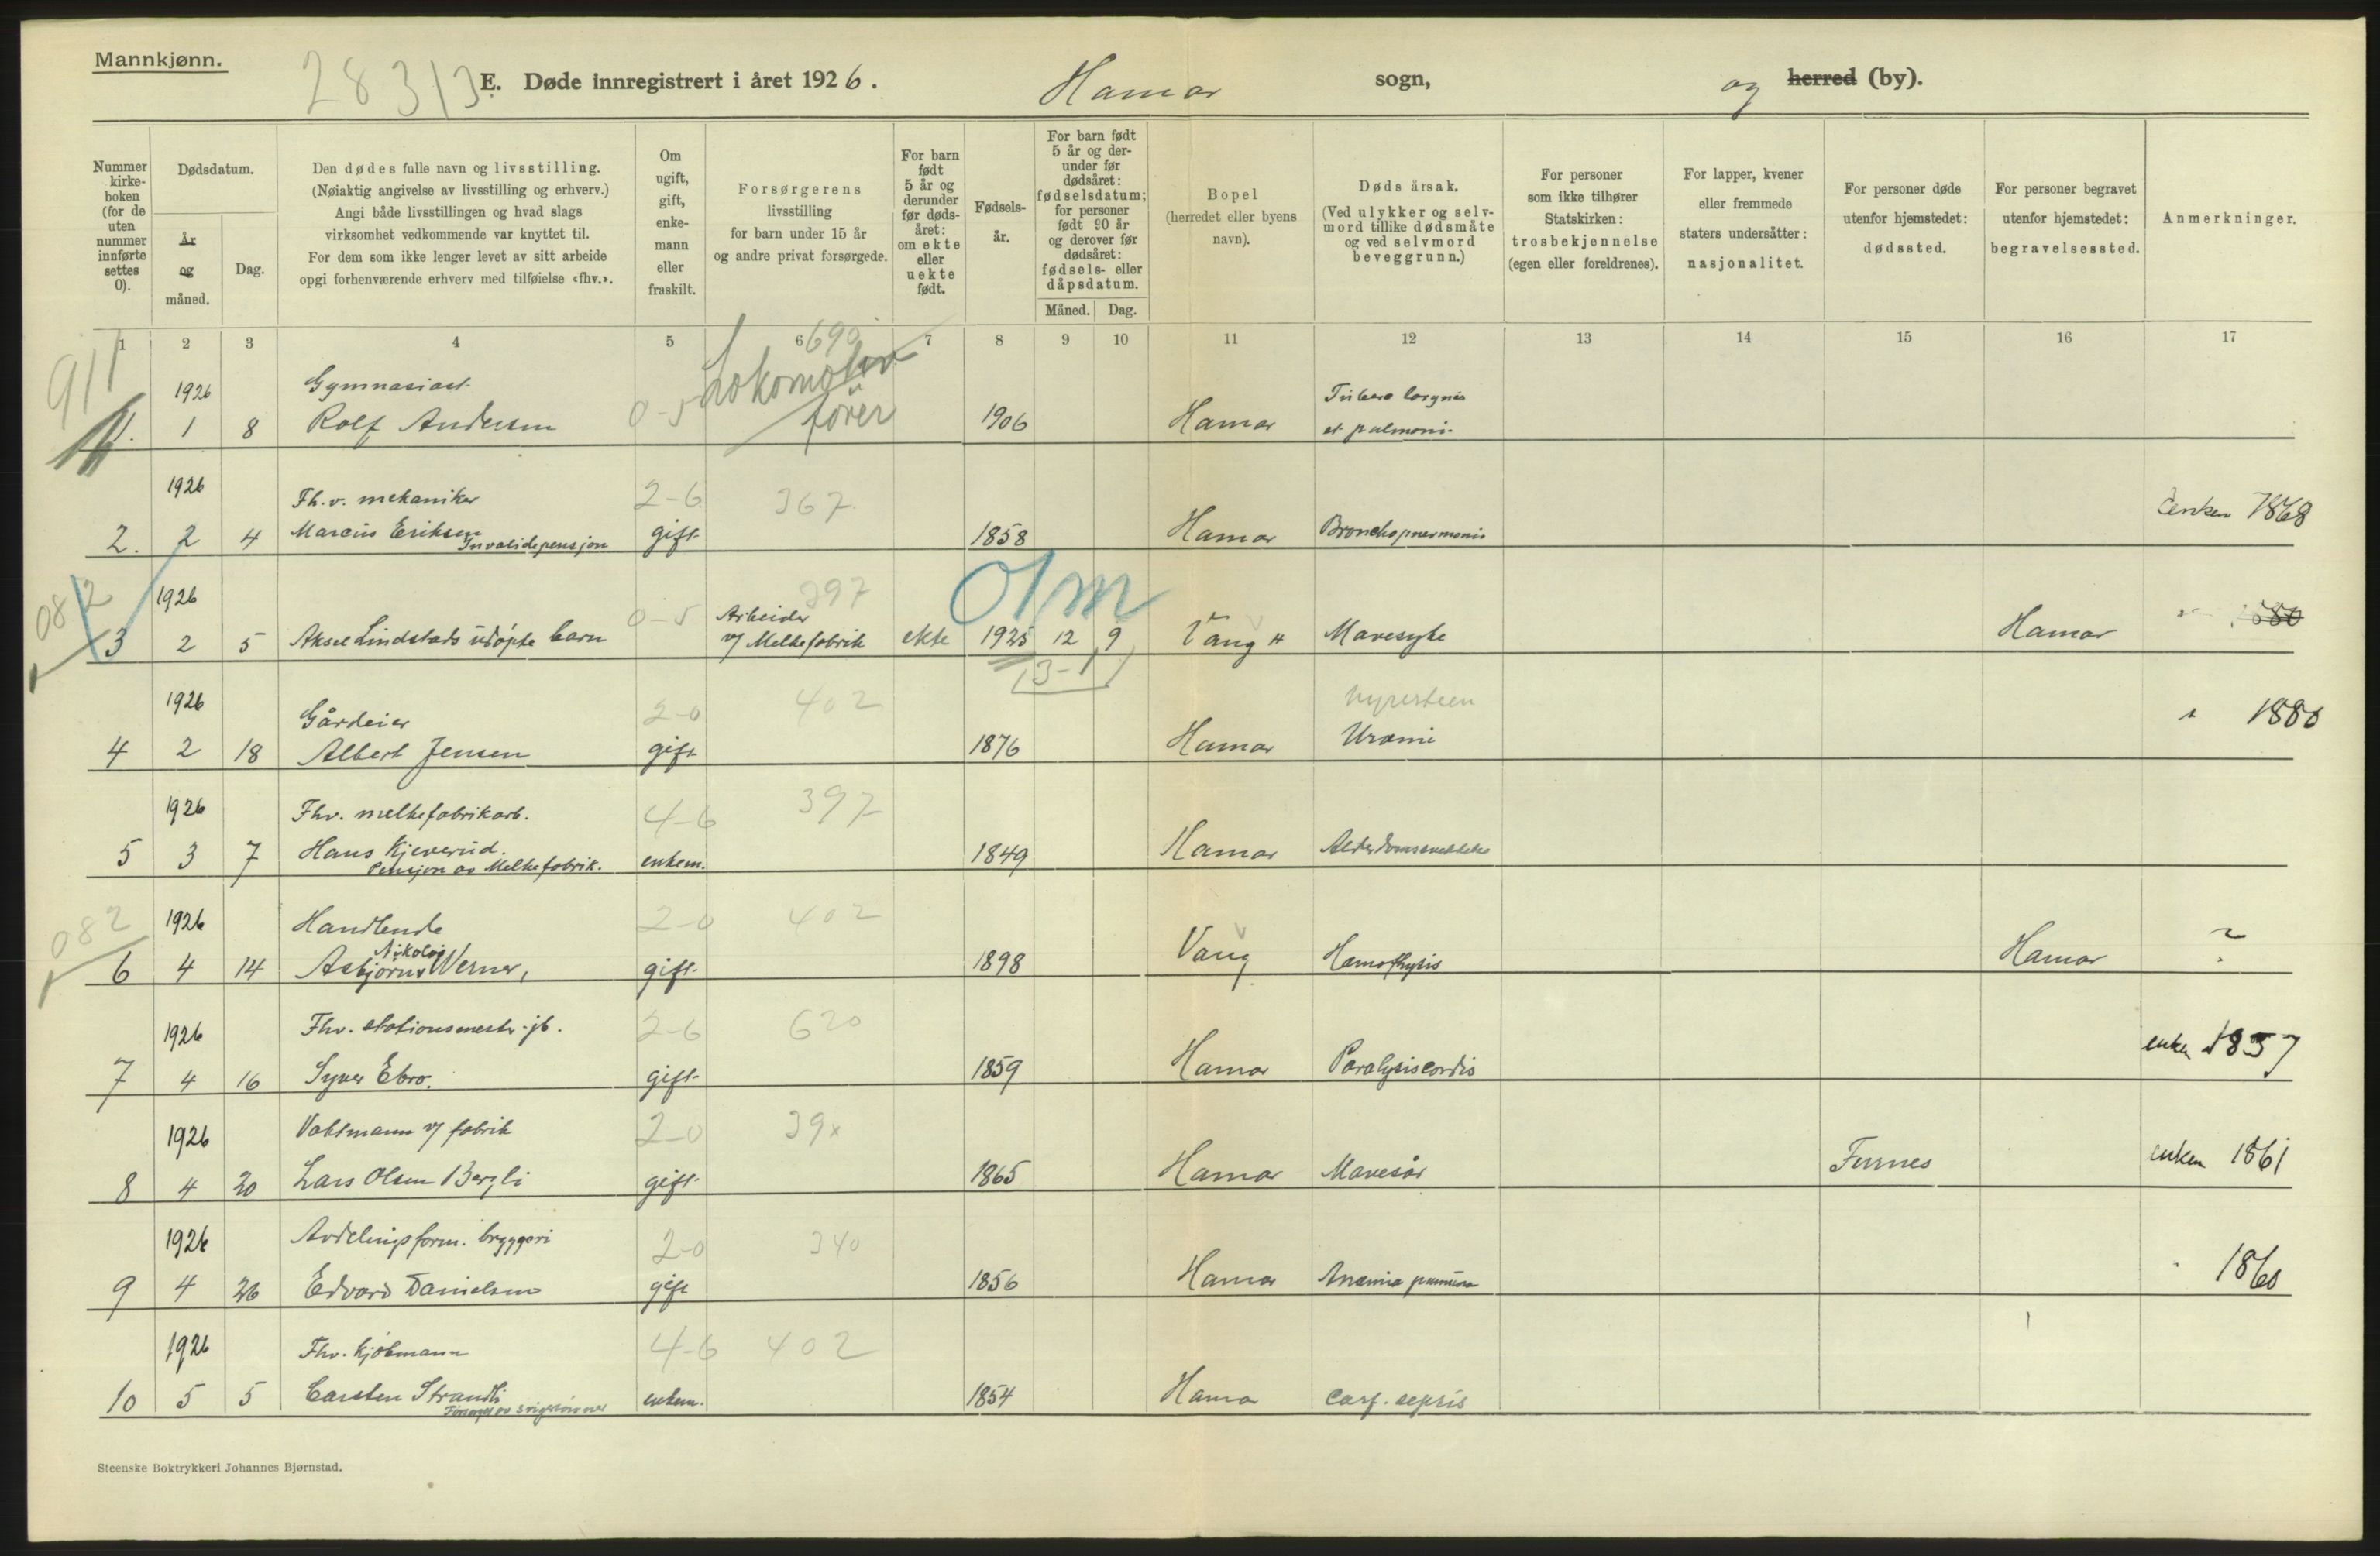 Mannkjønn.
28313
E. Døde innregistrert i året 1926. Hamar sogn, og herred (by).
Nummer kirkeboken (for de uten nummer innførte settes 0).
Dødsdatum.
År og måned.
Dag.
Den dødes fulle navn og livsstilling.
(Nøiaktig angivelse av livsstilling og erhverv.)
Angi både livsstillingen og hvad slags
virksomhet vedkommende var knyttet til.
For dem som ikke lenger levet av sitt arbeide
opgi forhenværende erhverv med tilføielse «fhv.».
Om ugift, gift, enkemann eller fraskilt.
Forsørgerens
livsstilling
for barn under 15 år
og andre privat forsørgede.
For barn født 5 år og derunder før dødsåret: om ekte eller uekte født.
Fødselsår.
For barn født 5 år og derunder før dødsåret: fødselsdatum; for personer født 90 år og derover før dødsåret: fødsels- eller dåpsdatum.
Måned. Dag.
Bopel
(herredet eller byens
navn).
Døds årsak.
(Ved ulykker og selvmord tillike dødsmåte
og ved selvmord
beveggrunn.)
For personer
som ikke tilhører
Statskirken:
trosbekjennelse
(egen eller foreldrenes).
For lapper, kvener
eller fremmede
staters undersåtter:
nasjonalitet.
For personer døde
utenfor hjemstedet:
dødssted.
For personer begravet
utenfor hjemstedet:
begravelsessted.
Anmerkninger.
1 2 3 4 5 6 7 8 9 10 11 12 13 14 15 16 17
911 690
1926 Gymnasiast Lokomotiv
1. 1 8 Rolf Andersen 0-5 fører 1906 Hamar et pulmoni.
1926 Fh.v. mekaniker 2-6 367 Enken 1868
2. 2 4 Marcus Eriksen gift 1858 Hamar Bronchopneumonie
Invalidepensjon
082 1926 0-5 Arbeider 397 Olm
3 2 5 Aksel Lindstads udøpte barn v/ Melkefabrik ekte 1925 12 9 Vang H Mavesyke Hamar 1880
13-1
1926 Gårdeier 2-0 402 nyresteen 1880
4 2 18 Albert Jensen gift 1876 Hamar Uræmi
1926 Fhv. melkefabrikarb. 4-6 397
5 3 7 Hans Kjeverud. enkem. 1849 Hamar Alderdomssvakhet
Pensjon av Melkefabrik.
082 1926 Handlende 2-0 402
6 4 14 Asbjørn Nikolai Werner, gift 1898 Vang Hamar ?
1926 Fhv. stationsmestr. jb. 2-6 620 enken 1857
7 4 16 Syver Ebro. gift 1859 Hamar Paralysis cordis
1926 Vaktmann v/ fabrik 2-0 39x
8 4 20 Lars Olsen Bergli gift 1865 Hamar Mavesår Furnes enken 1861
1926 Avdelingsform. bryggeri 2-0 340
9 4 26 Edvard Danielsen gift 1856 Hamar 1860
1926 Fhv. kjøbmann 4-6 402
10 5 5 Carsten Strandli enkem. 1854 Hamar
Steenske Boktrykkeri Johannes Bjørnstad.